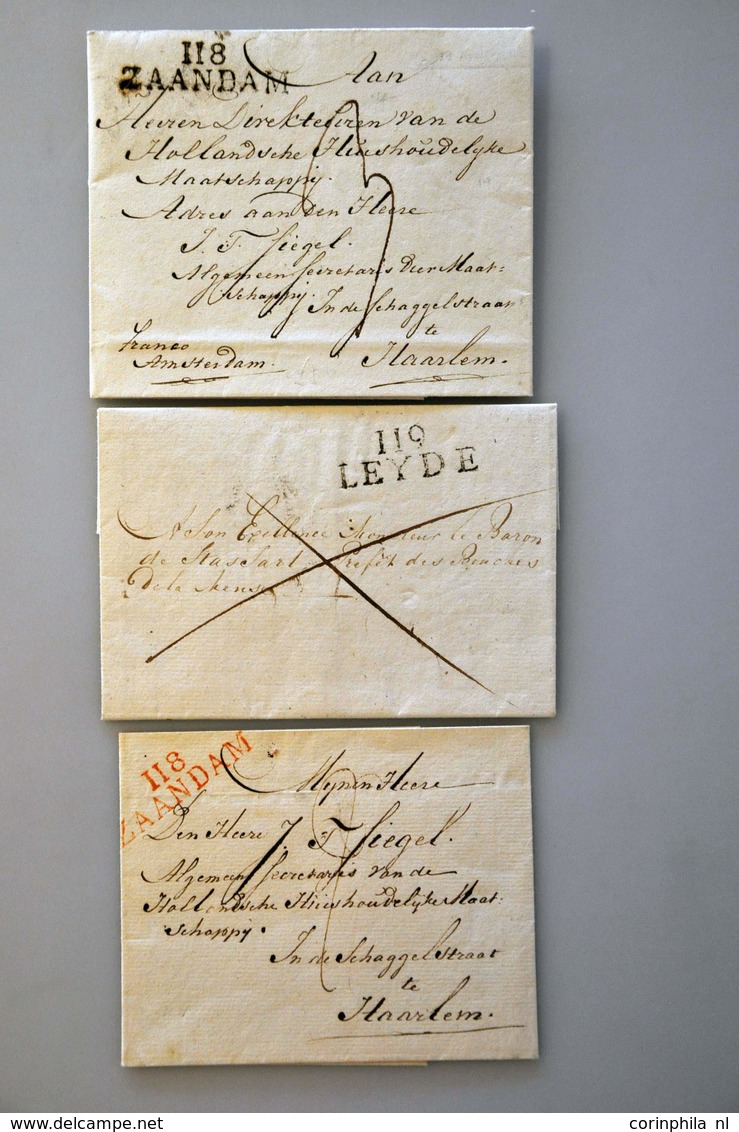 118
ZAANDAM
Aan
Heeren Direkteuren van de
Hollandsche Huishoudelyke
Maatschappy.
Adres aan den Heere
J. F. Siegel.
Algemeen Secretaris Der Maat=
schappy. In de Schaggelstraat
te
Haarlem.
franco
Amsterdam.
119
LEYDE
A Son Exellence Monsieur le Baron
de Stassart Préfét des Bouches
de la Meuse
118
ZAANDAM
Mynen Heere
Den Heere J. F. Siegel.
Algemeen Secretaris van de
Hollandsche Huishoudelyke Maat:
schappy.
In de Schaggelstraat
te
Haarlem.
www.delcampe.net
corinphila nl